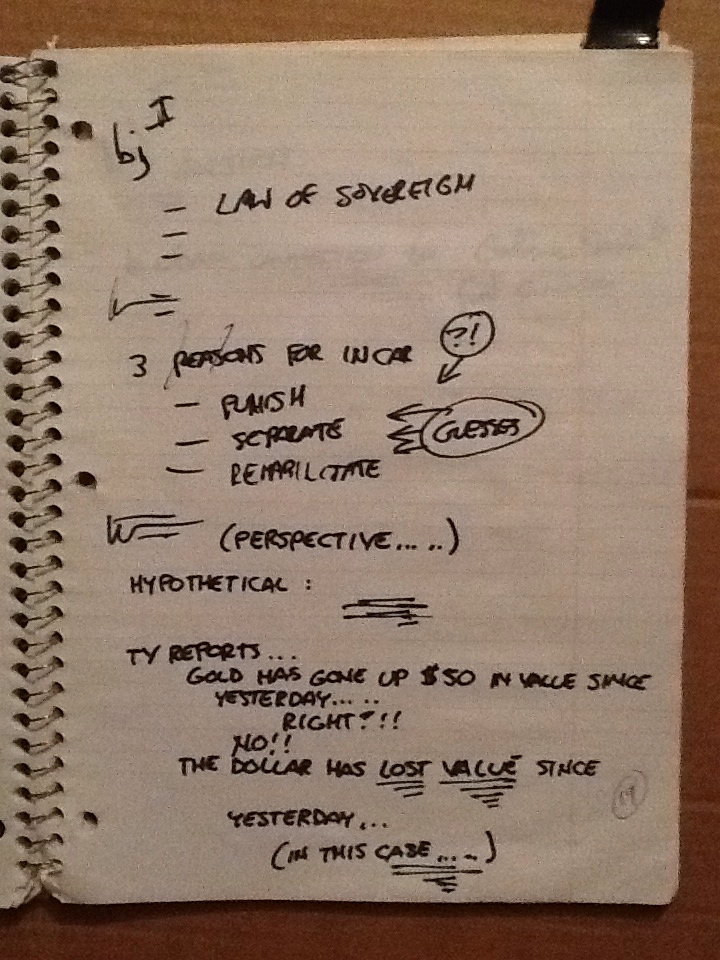 bj I
— LAW OF SOVEREIGN
—
—
3 REASONS FOR INCAR
?!
— PUNISH
— SEPARATE
GUESSES
— REHABILITATE
(PERSPECTIVE.....)
HYPOTHETICAL :
TV REPORTS...
GOLD HAS GONE UP $50 IN VALUE SINCE
YESTERDAY.....
RIGHT?!!
NO!!
THE DOLLAR HAS LOST VALUE SINCE
19
YESTERDAY...
(IN THIS CASE.....)